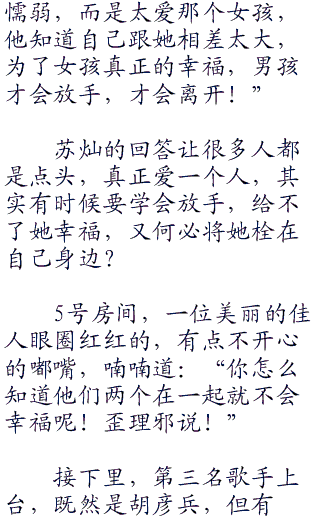 懦弱，而是太爱那个女孩，
他知道自己跟她相差太大，
为了女孩真正的幸福，男孩
才会放手，才会离开！”
苏灿的回答让很多人都
是点头，真正爱一个人，其
实有时候要学会放手，给不
了她幸福，又何必将她栓在
自己身边？
5号房间，一位美丽的佳
人眼圈红红的，有点不开心
的嘟嘴，喃喃道：“你怎么
知道他们两个在一起就不会
幸福呢！歪理邪说！”
接下里，第三名歌手上
台，既然是胡彦兵，但有